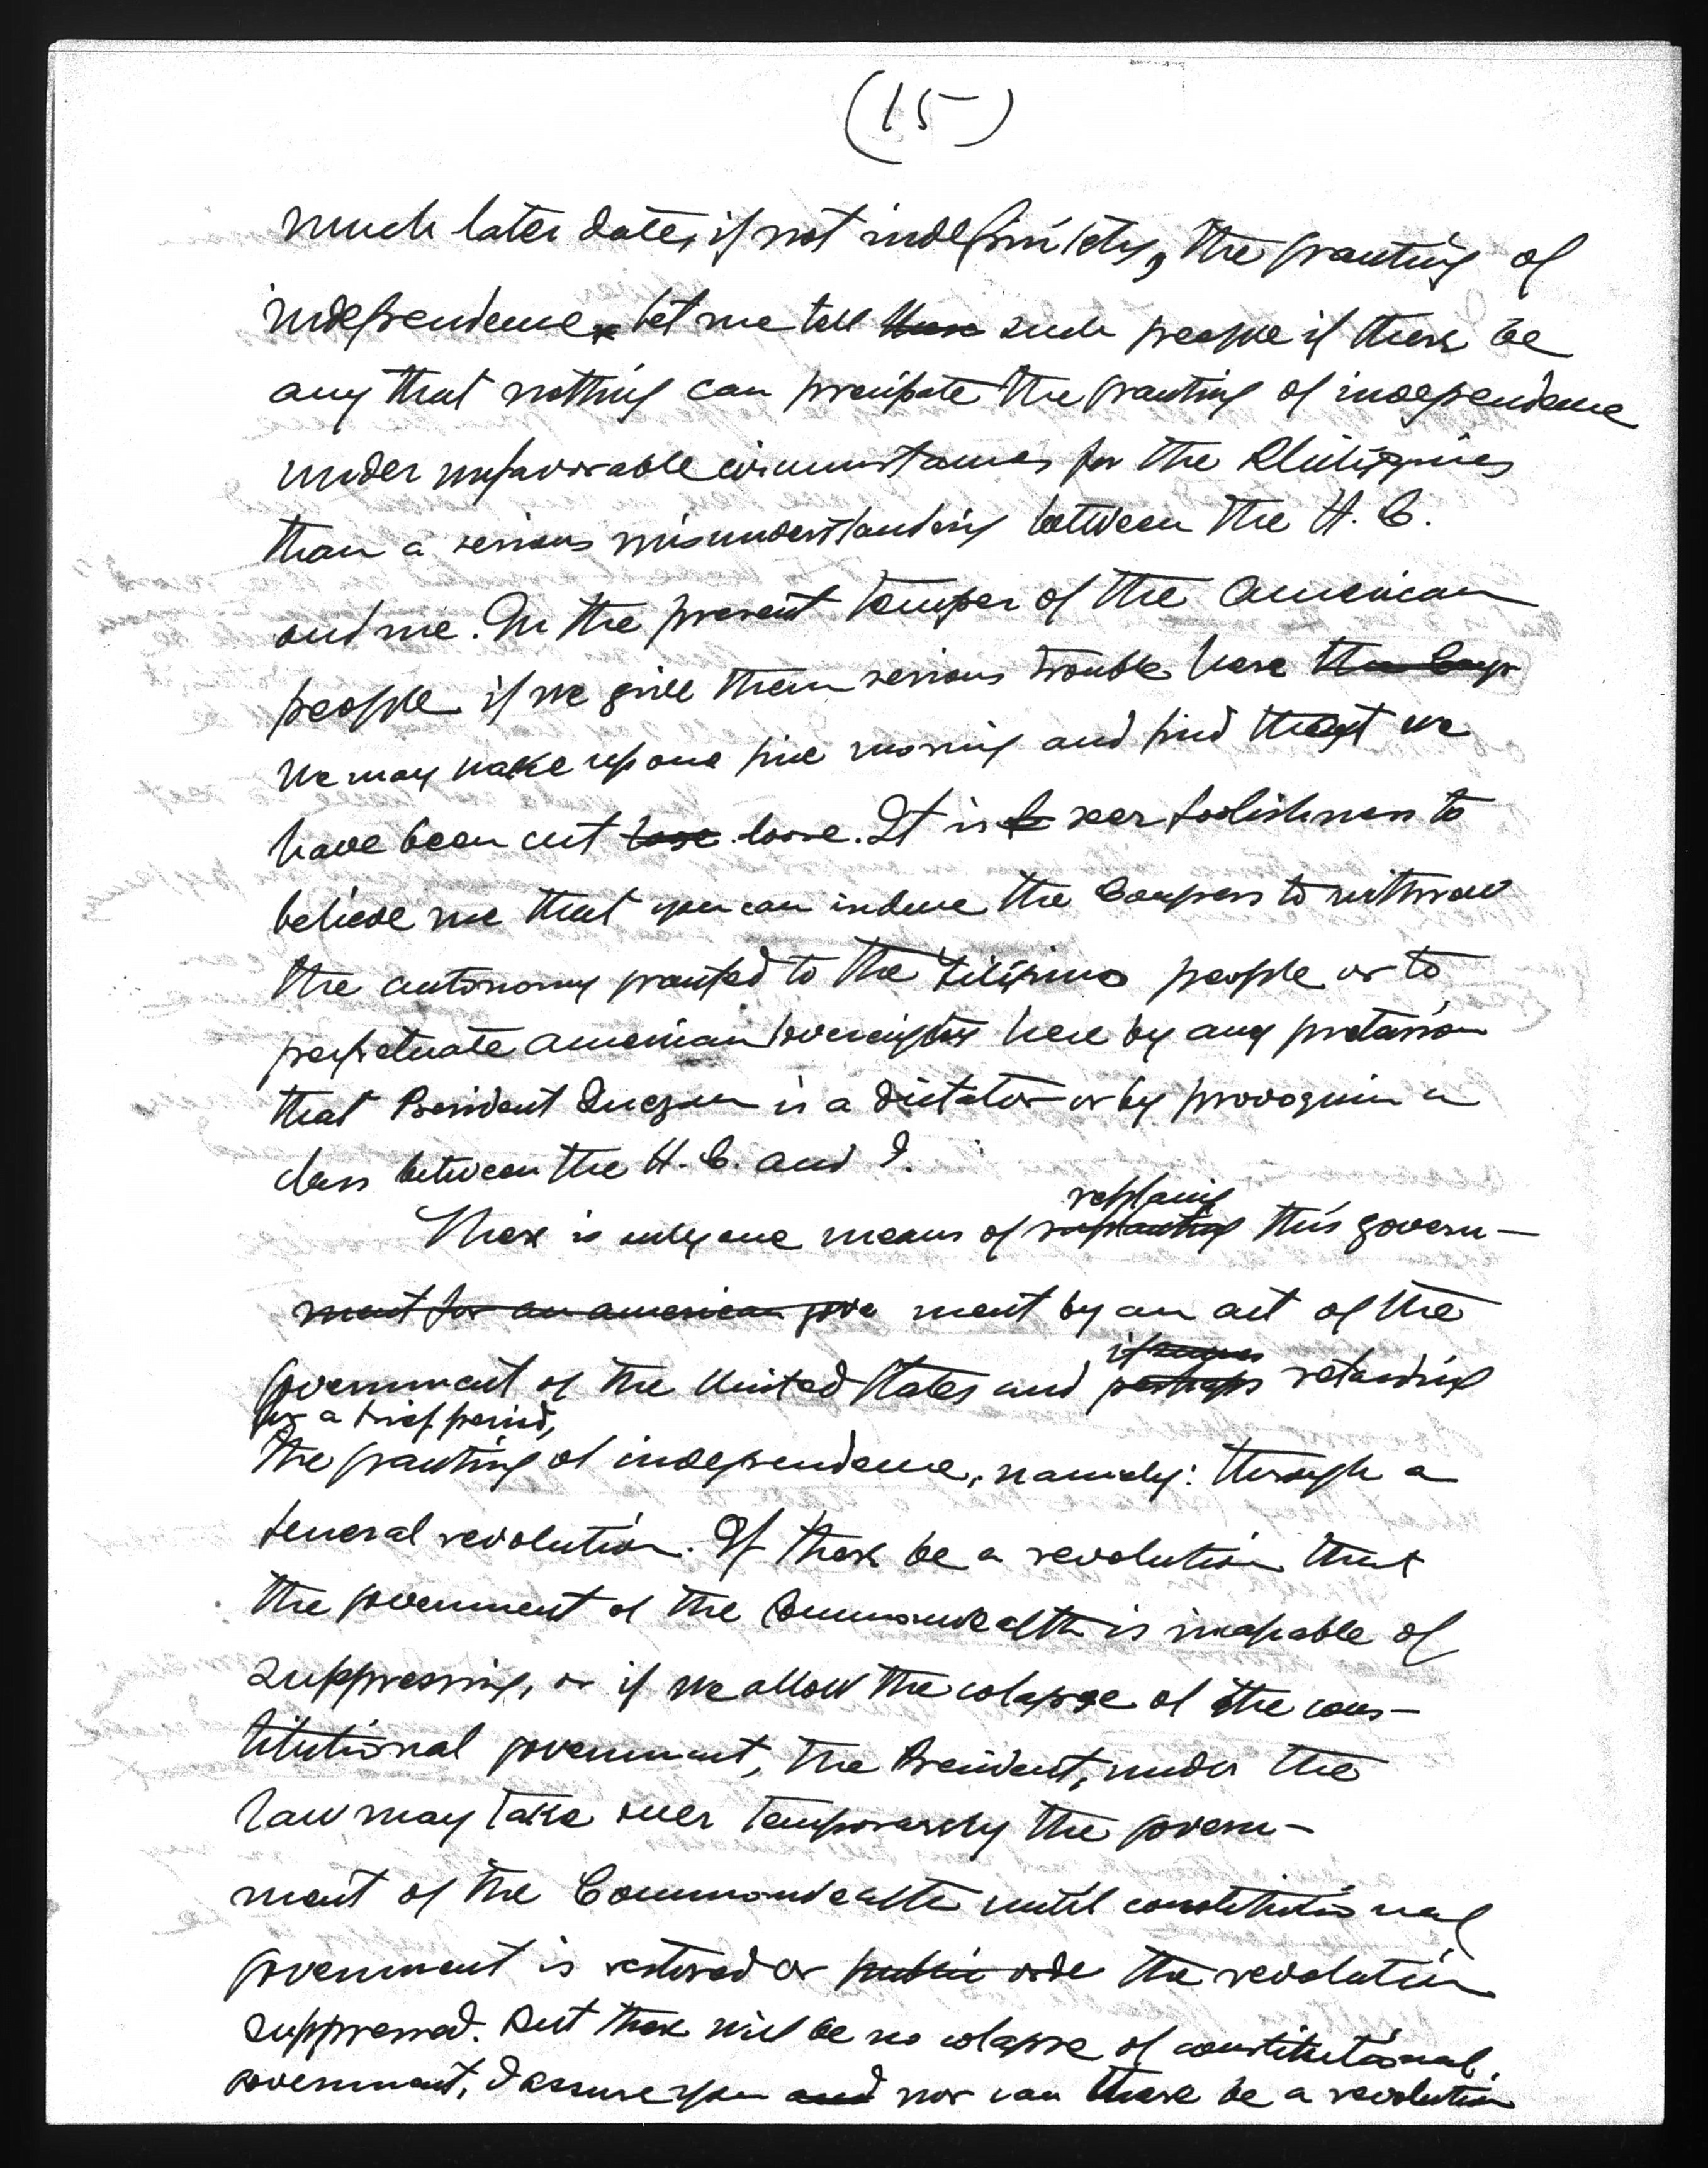 (15)
much later date, if not indefinitely, the granting of
independence. Let me tell these such people if there be
any that nothing can precipate the granting of independence
under unfavorable circumstances for the Philippines
than a serious misunderstanding between the H. C.
and me. In the present temper of the American
people if we give them serious trouble here the Congr
we may wake up one fine morning and find that we
have been cut lose loose. It is seer foolishness to
believe me that you can induce the Congress to withdraw
the autonomy granted to the Filipino people or to
perpetuate American sovereignty here by any pretension
that President Quezon is a dictator or by provoquin a
class between the H. C. and I.
replacing
There is only one means of supplanting this govern-
ment for an american gove ment by an act of the
if
government of the United States and perhaps retarding
for a brief period,
the granting of independence, namely: through a
general revolution. If there be a revolution that
the government of the Commonwealth is incapable of
suppressing, or if we allow the colapse of the cons-
titutional government, the President, under the
law may take over temporarely the govern-
ment of the Commonwealth until constitutional
government is restored or public orde the revolution
suppressed. But there will be no colapse of constitutional
government, I assure you and nor can there be a revolution